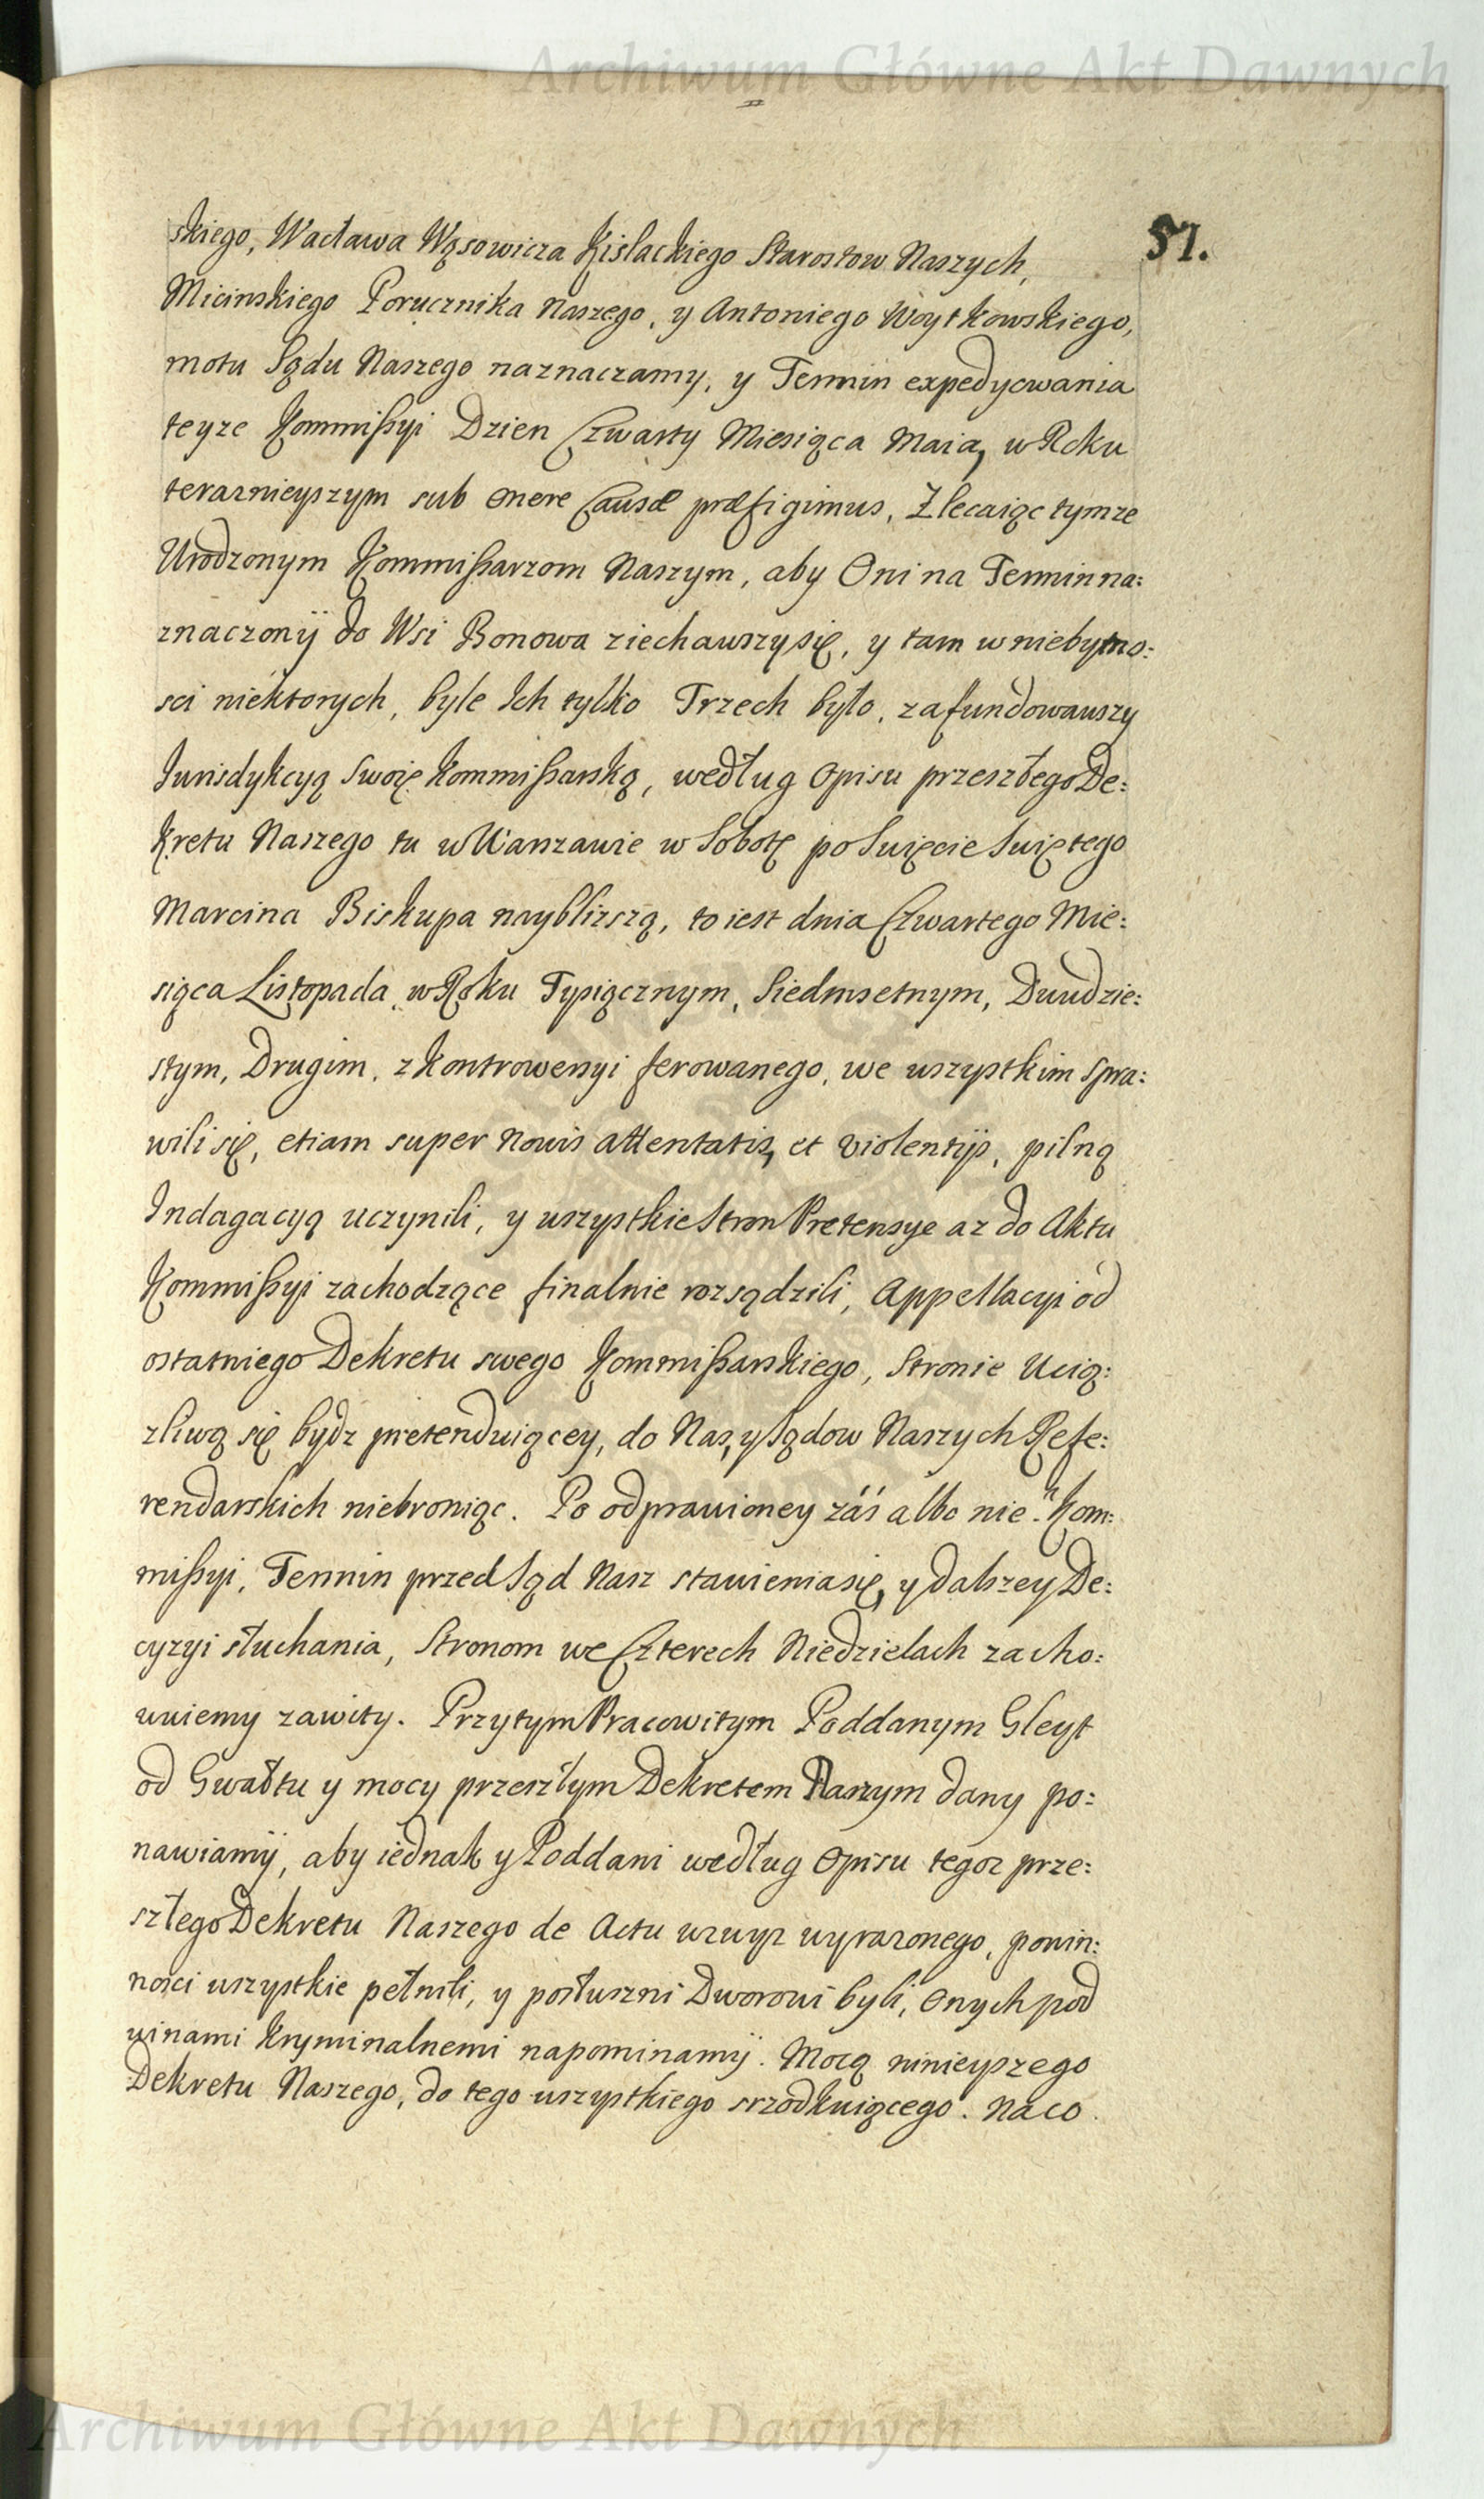 Archiwum Główne Akt Dawnych
57.
skiego, Wacława Wąsowicza Kislackiego Starostow Naszych,
Micinskiego Porucznika Naszego, y Antoniego Woytkowskiego,
motu Sądu Naszego naznaczamy, y Termin expedyowania
teyze Kommissyi Dzien Czwarty Miesiąca Maia, w Roku
teraznieyszym sub onere Causæ præfigimus, Zlecaiąc tymze
Urodzonym Kommissarzom Naszym, aby Oni na Termin na:
znaczonÿ do Wsi Bonowa ziechawszy się, y tam w niebytno:
sci niektorych, byle Ich tylko Trzech było, zafundowawszy
Jurisdykcyą Swoię Kommissarską, według Opisu przeszłego De:
kretu Naszego tu w Warszawie w Sobotę po Swięcie Swiętego
Marcina Biskupa nayblizszą, to iest dnia Czwartego Mie:
siąca Listopada, w Roku Tysiącznym, Siedmsetnym, Dwudzie:
stym, Drugim, z kontrowersyi ferowanego, we wszystkim spra:
wili się, etiam super novis attentatis, et violentijs, pilną
Indagacyą uczynili, y wszystkie Stron Pretensye az do Aktu
Kommissyi zachodzące finalnie rozsądzili, Appellacyi od
ostatniego Dekretu swego Kommissarskiego, Stronie Ucią:
zliwą się bydz pretenduiącey, do Nas, y Sądow Naszych Refe:
rendarskich niebroniąc. Po odprawioney záś albo nie Kom:
missyi, Termin przed Sąd Nasz stawienia się, y dalszey De:
cyzyi słuchania, Stronom we Czterech Niedzielach zacho:
wuiemy zawity. Przytym Pracowitym Poddanym Gleyt
od Gwałtu y mocy przeszłym Dekretem Naszym dany po:
nawiamÿ, aby iednak y Poddani według Opisu tegoz prze:
szłego Dekretu Naszego de Actu wzwyz wyrazonego, powin:
nosci wszystkie pełnili, y posłuszni Dworowi byli, Onych pod
winami kryminalnemi napominamÿ. Mocą ninieyszego
Dekretu Naszego, do tego wszystkiego srzodkuiącego. Na co
Archiwum Główne Akt Dawnych